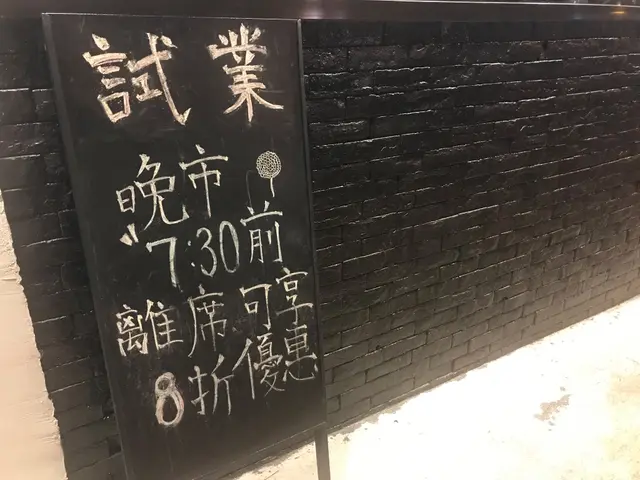 試業
晚市
"7:30前
離席可享
8折優惠